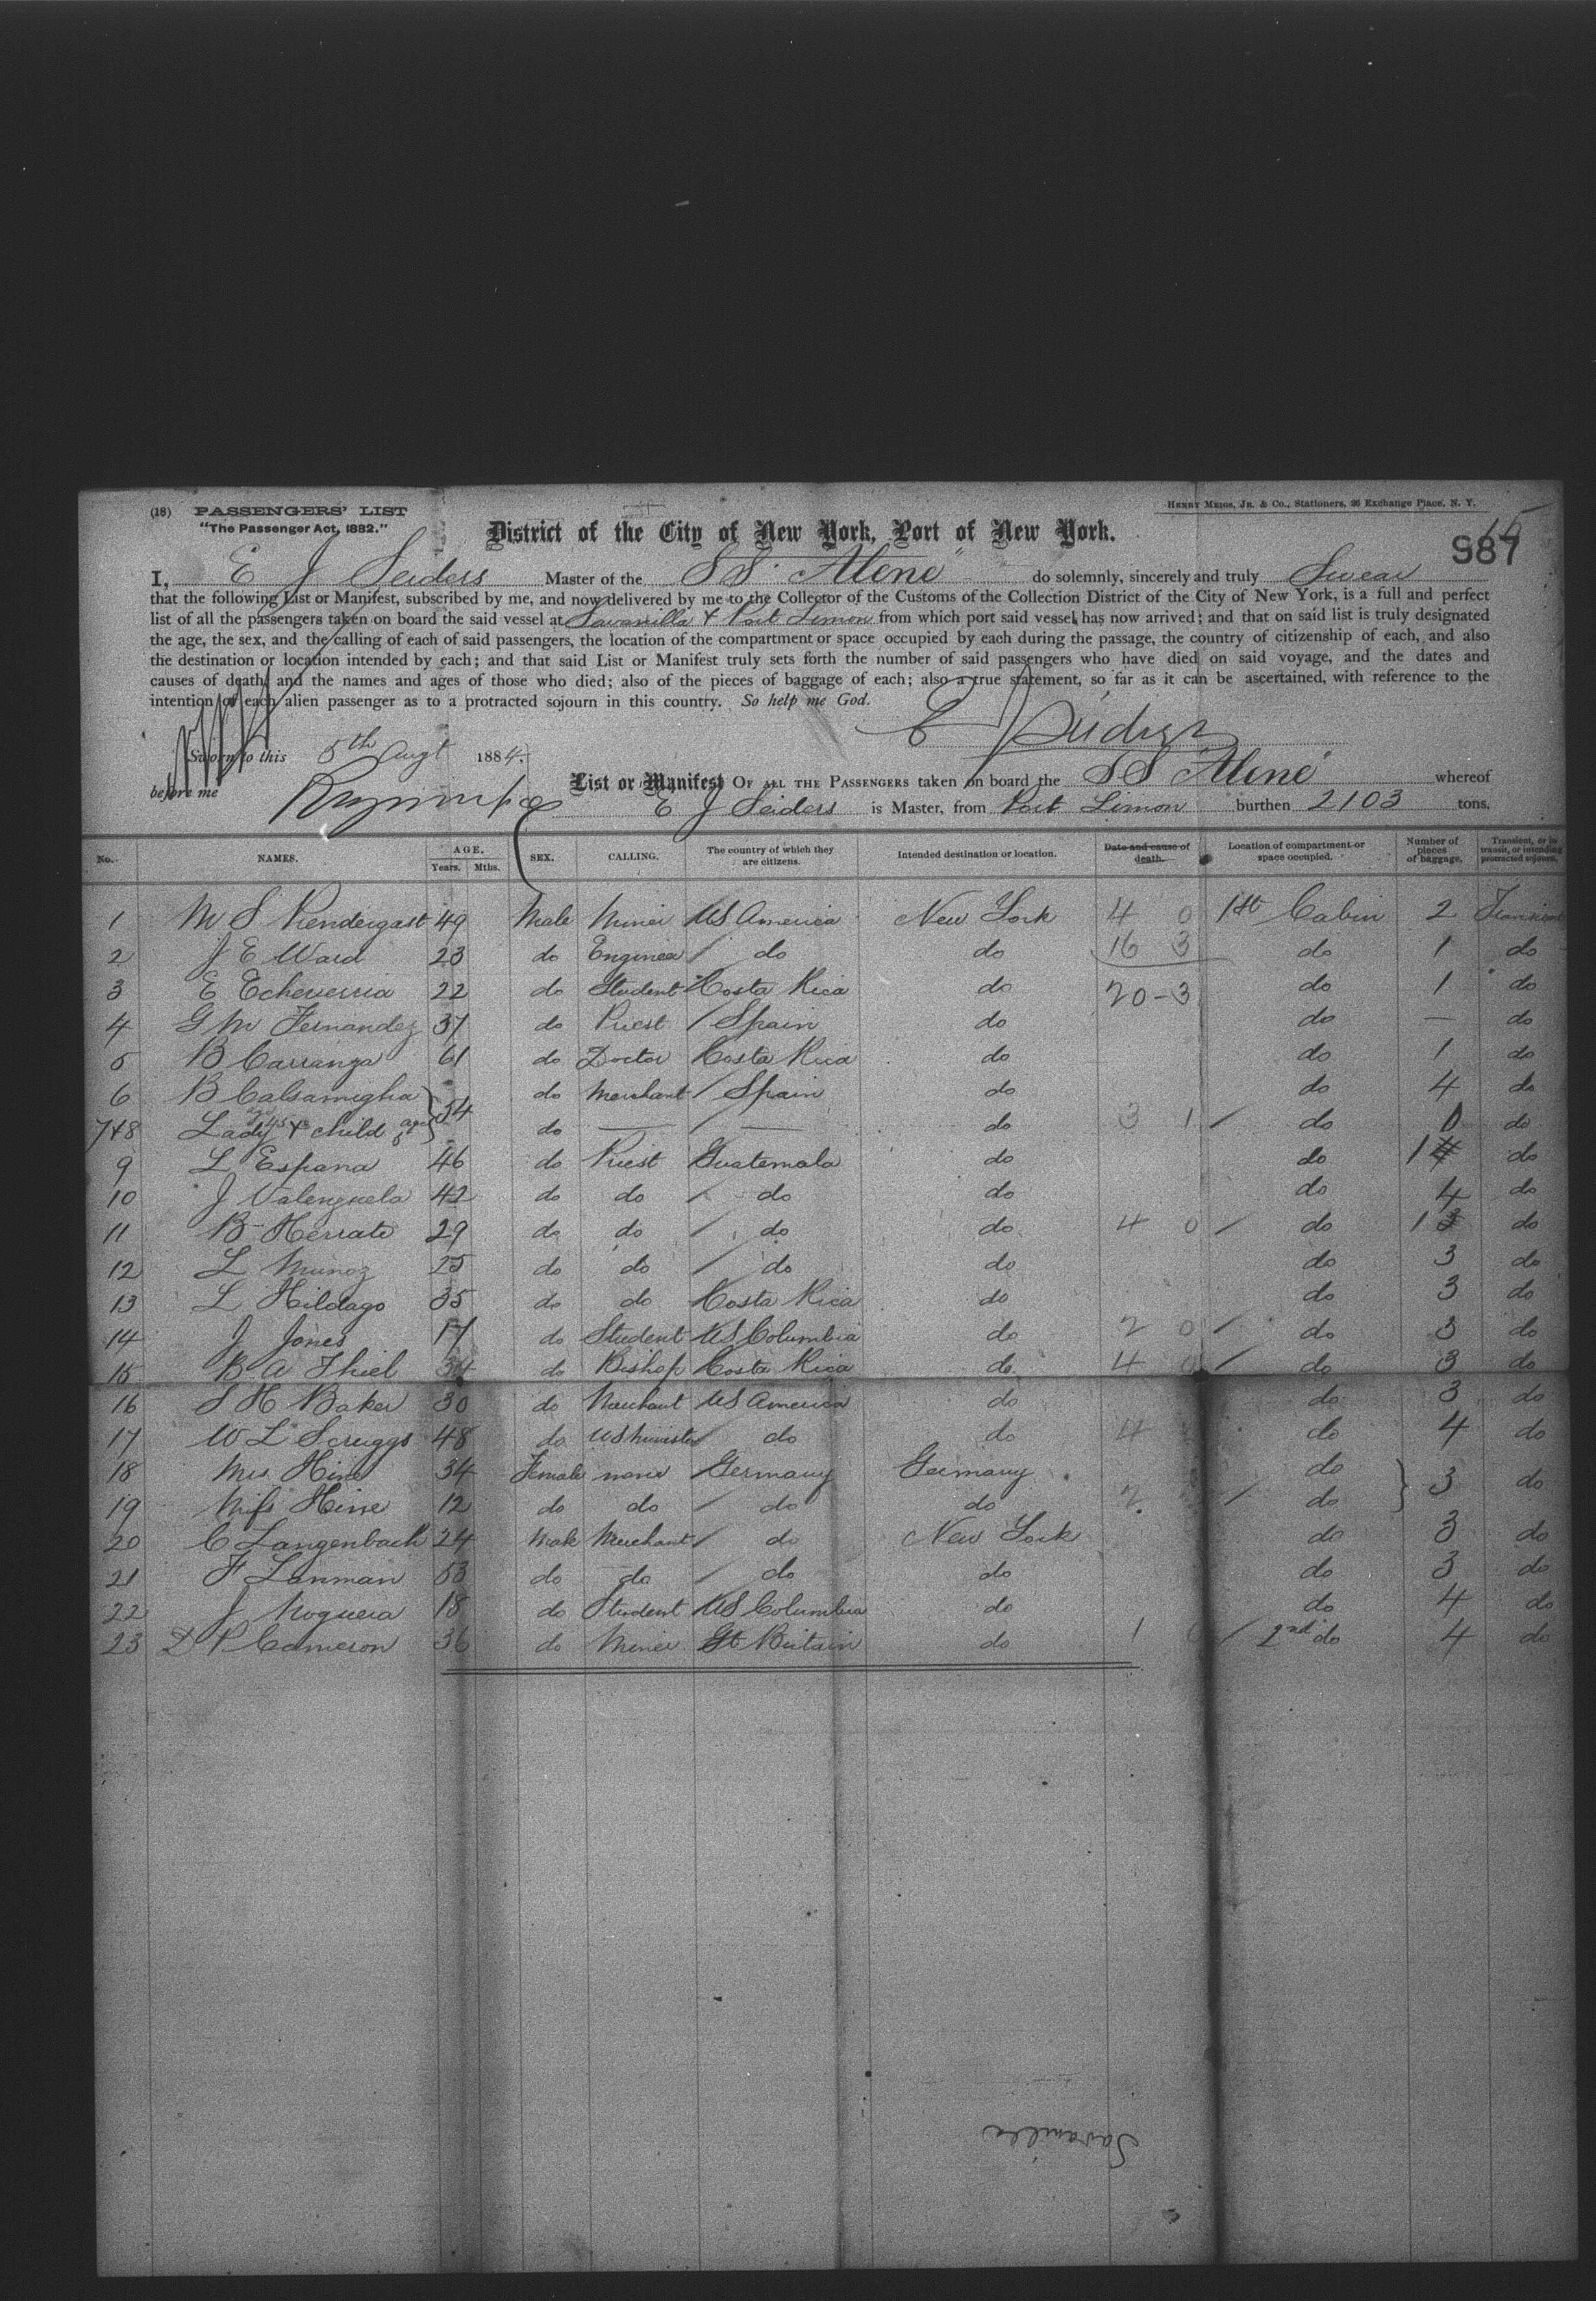 (18) PASSENGERS' LIST
"The Passenger Act, 1882."
HENRY MEIGS, JR. & CO., Stationers, 26 Exchange Place, N. Y.
District of the City of New York, Port of New York.
15
987
I, E J Seiders Master of the SS "Alene" do solemnly, sincerely and truly Swear
that the following List or Manifest, subscribed by me, and now delivered by me to the Collector of the Customs of the Collection District of the City of New York, is a full and perfect
list of all the passengers taken on board the said vessel at Savanilla & Port Limon from which port said vessel has now arrived; and that on said list is truly designated
the age, the sex, and the calling of each of said passengers, the location of the compartment or space occupied by each during the passage, the country of citizenship of each, and also
the destination or location intended by each; and that said List or Manifest truly sets forth the number of said passengers who have died on said voyage, and the dates and
causes of death, and the names and ages of those who died; also of the pieces of baggage of each; also a true statement, so far as it can be ascertained, with reference to the
intention of each alien passenger as to a protracted sojourn in this country. So help me God.
E J Seiders
Sworn to this 5th Augt 1884.
before me
List or Manifest OF ALL THE PASSENGERS taken on board the SS "Alene" whereof
E J Seiders is Master, from Port Limon burthen 2103 tons.
No. NAMES. AGE. Years. Mths. SEX. CALLING. The country of which they are citizens. Intended destination or location. Date and cause of death. Location of compartment or space occupied. Number of pieces of baggage. Transient, or in transit, or intending protracted sojourn.
1 M S Pendergast 49 Male Miner US America New York 4 0 1st Cabin 2 Transient
2 J E Ward 23 do Engineer / do do 16 3 do 1 do
3 E Echeverria 22 do Student Costa Rica do 20-3 do 1 do
4 G M Fernandez 37 do Priest / Spain do do — do
5 B Carranza 61 do Doctor Costa Rica do do 1 do
6 B Calsamiglia 54 do Merchant / Spain do do 4 do
7&8 Lady age 45 & child age 5 do — / — do 3 1 / do 0 do
9 L Espana 46 do Priest Guatemala do do 1 do
10 J Valenzuela 42 do do / do do do 4 do
11 B Herrate 29 do do / do do 4 0 / do 1 do
12 L Munoz 25 do do / do do do 3 do
13 L Hildago 35 do do Costa Rica do do 3 do
14 J Jones 17 do Student US Columbia do 2 0 / do 3 do
15 B A Thiel 34 do Bishop Costa Rica do 4 0 / do 3 do
16 S H Baker 30 do Merchant US America do do 3 do
17 W L Scruggs 48 do US Minister / do do 4 do 4 do
18 Mrs Hine 34 Female none / Germany Germany do 3 do
19 Miss Hine 12 do do / do do 2 / do
20 C Langenbach 24 Male Merchant / do New York do 3 do
21 F Lanman 53 do do / do do do 3 do
22 J Noguera 18 do Student US Columbia do do 4 do
23 D P Cameron 36 do Miner Gt Britain do 1 0 / 2nd do 4 do
Savanilla